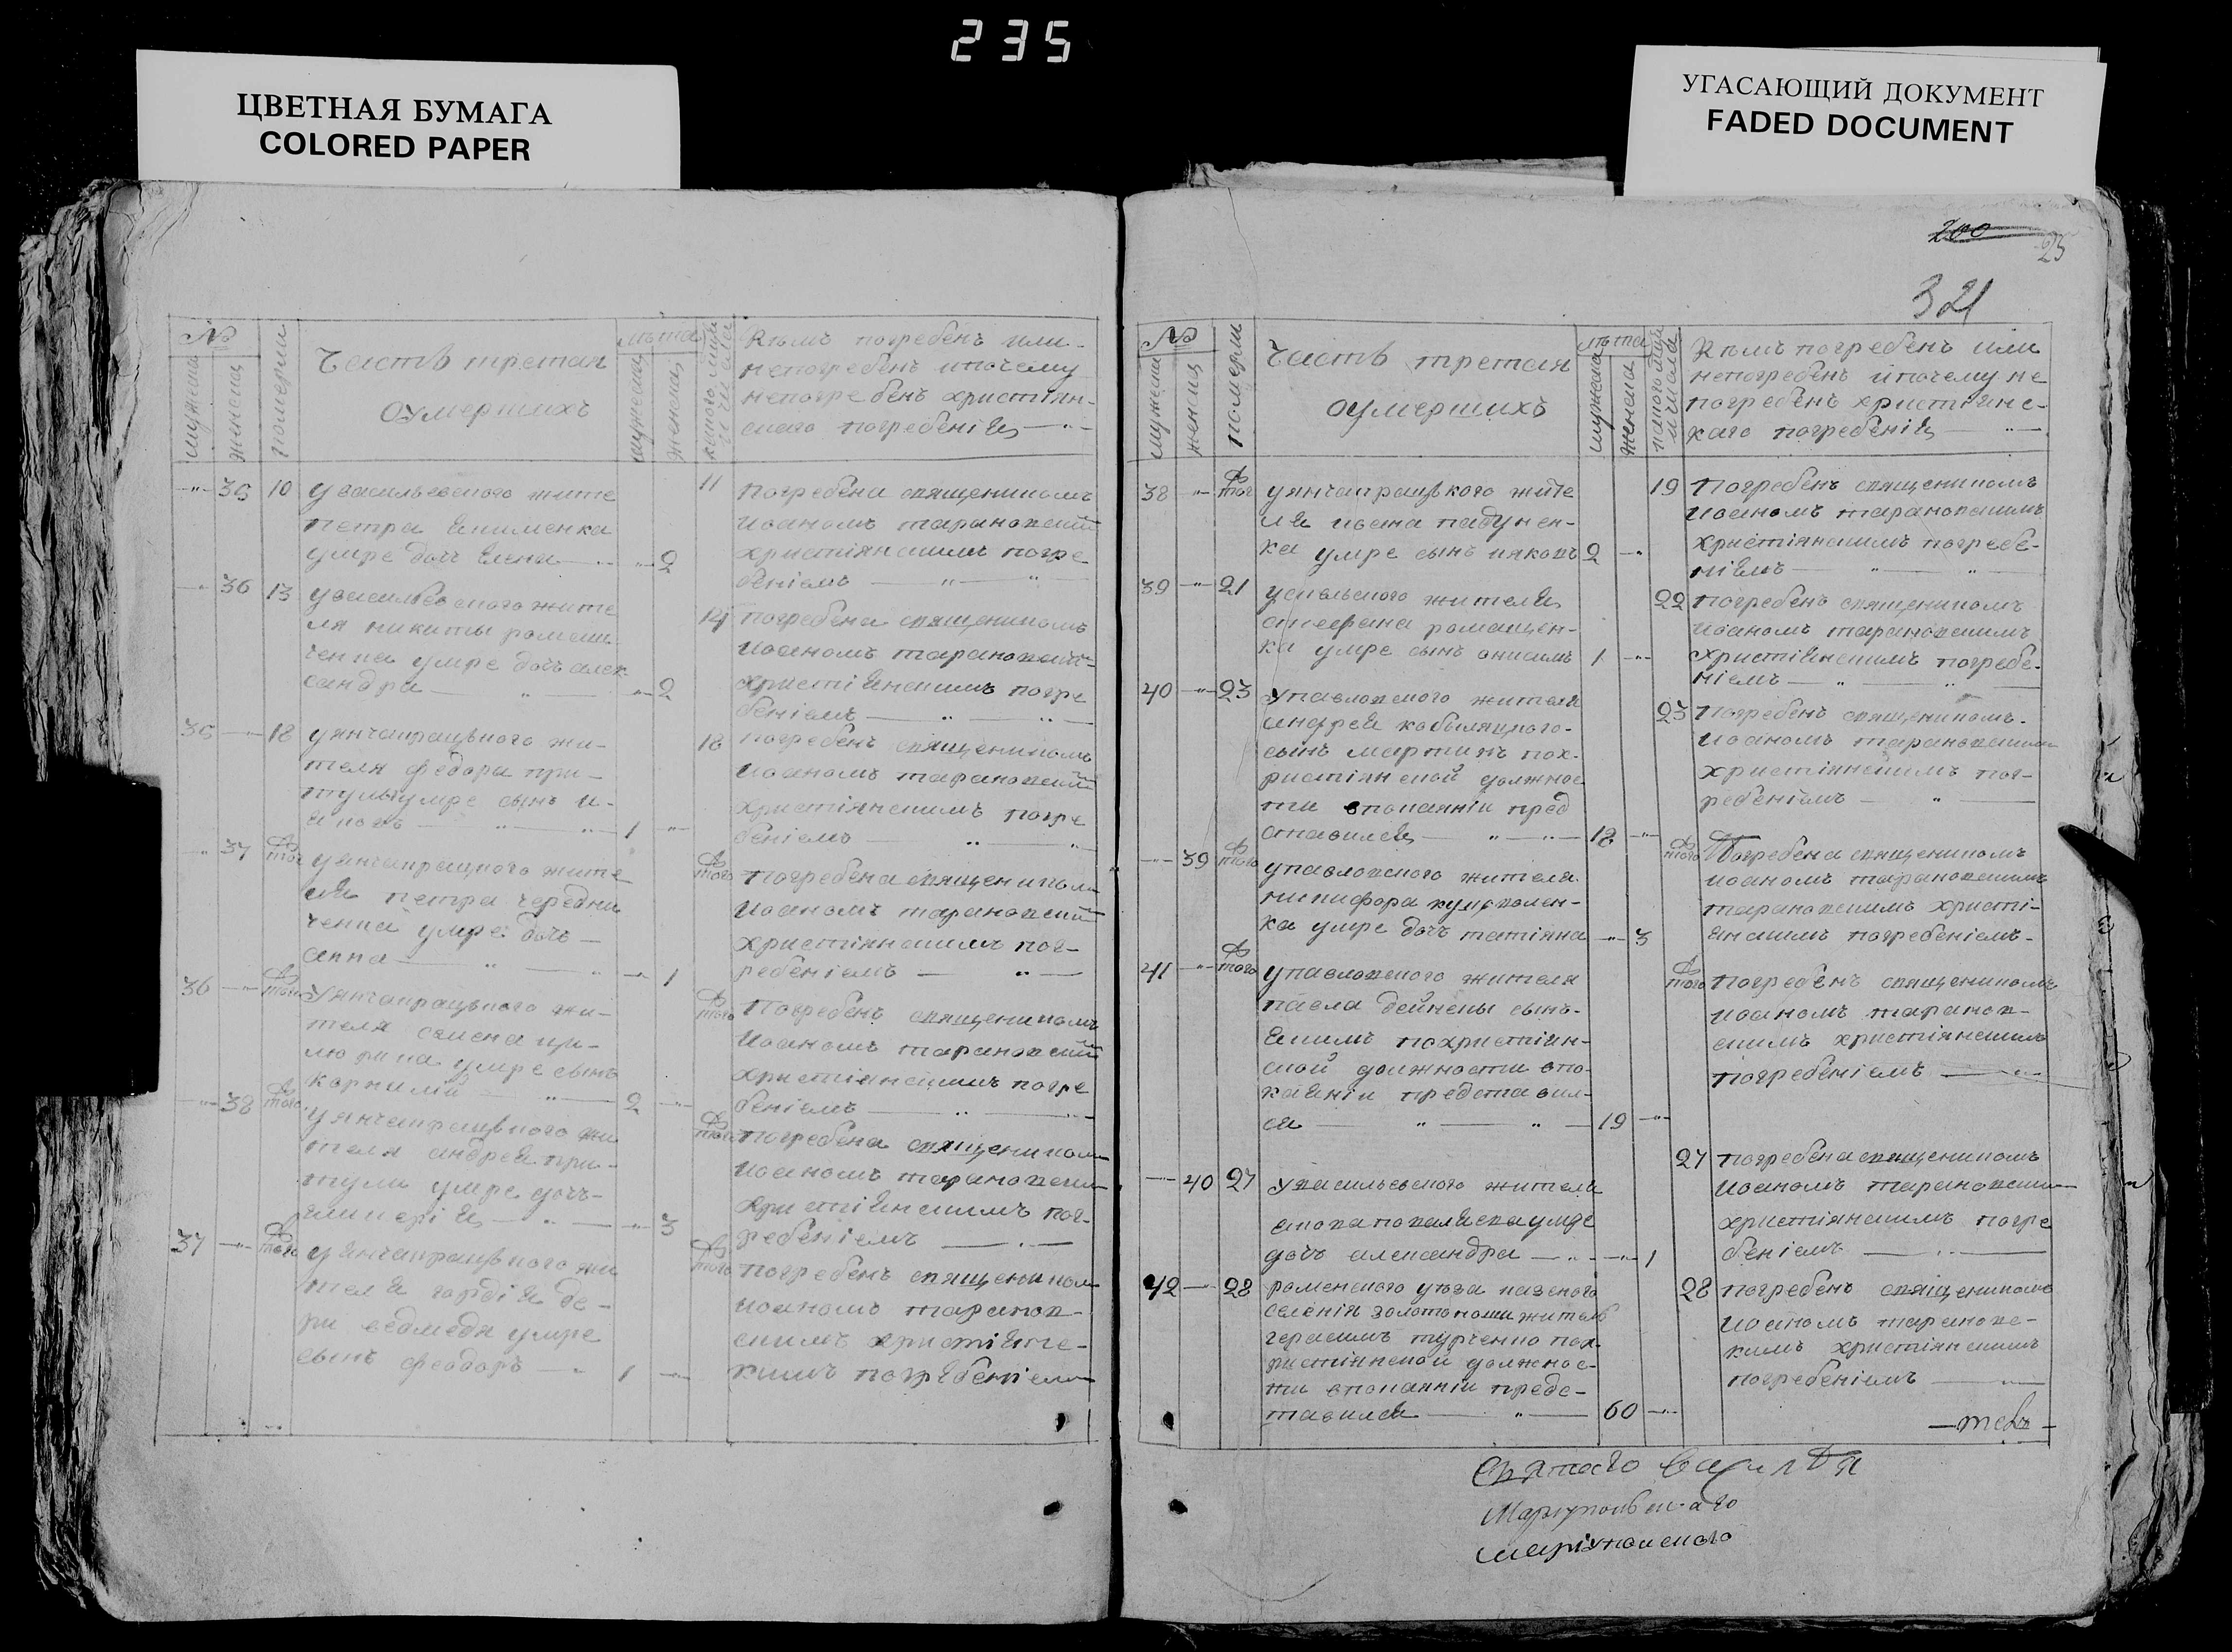 235
ЦВЕТНАЯ БУМАГА
COLORED PAPER
УГАСАЮЩИЙ ДОКУМЕНТ
FADED DOCUMENT
200
23
321
№
мужеска
женска
померли
Часть третая
оумершихъ
лѣта
мужеска
женска
Кѣмъ погребенъ или
непогребенъ ипочему
непогребенъ христіян-
скаго погребенія
35 10 увасильевского жите
петра
умре дочъ Елена 2
11 погребена священикомъ
иоаномъ тарановский
христіянскимъ погре
беніемъ
36 13 увасильевского жите
ля никиты ромащ
ченка умре дочъ алек
сандра 2
14 погребена священикомъ
иоаномъ тарановский
христіянскимъ погре
беніемъ
35 18 уянчапрацького жи-
теля федора при-
тули умре сынъ и-
аковъ 1
18 погребенъ священикомъ
иоаномъ тарановский
христіянскимъ погре
беніемъ
37 того уянчапрацкого жите
ля петра чередни
ченка умре дочъ
анна 1
того погребена священиком
иоаномъ тарановский
христіянскимъ пог-
ребеніемъ
36 того уянчапрацького жи-
теля семена ци-
люрика умре сынъ
корнилій 2
того Погребенъ священикомъ
иоаномъ тарановский
христіянскимъ погре
беніемъ
38 того уянчапрацького жи
теля андрея при-
тули умре дочъ
гликерія 3
того погребена священиком
иоаномъ тарановским
христіянскимъ пог-
ребеніемъ
37 того уянчапрацького жи
теля гордія де-
ри ведмедя умре
сынъ феодоръ 1
того погребенъ священиком
иоаномъ таранов-
скимъ христіянс-
кимъ погребеніем
№
мужеска
женска
померли
Часть третая
оумершихъ
лѣта
мужеска
женска
Кѣмъ погребенъ или
непогребенъ ипочему не
погребенъ христіянс-
каго погребенія
38 тог уянчапрацького жите
ля ивана падунен-
ка умре сынъ ияковъ 2
19 Погребенъ священикомъ
иоаномъ тарановскимъ
христіянскимъ погребе-
ніемъ
39 21 жителя
стефана ромащен-
ка умре сынъ онисимъ 1
22 погребенъ священикомъ
иоаномъ тарановскимъ
христіянскимъ погребе-
ніемъ
40 23 упавловского жителя
андрея кобыляцкого
сынъ мартинъ пох-
ристіянской должнос
ти впокаянніи пред
ставился 18
23 Погребенъ священикомъ
иоаномъ тарановским
христіянскимъ пог-
ребеніемъ
39 того упавловского жителя
никифора
ка умре дочъ татіяна 3
того Погребена священикомъ
иоаномъ тарановскимъ
тарановскимъ христі-
янскимъ погребеніемъ
41 того упавловского жителя
павла дейнеки сынъ
Екимъ похристіян-
ской должности впо-
каяніи представил-
ся 19
того погребенъ священикомъ
иоаномъ таранов-
скимъ христіянскимъ
погребеніемъ
40 27 увасильевского жителя
умре
дочъ александра 1
27 погребена священикомъ
иоаномъ тарановским
христіянскимъ погре
беніемъ
42 28 роменского уѣзда казеного
селенія золотоноши житель
герасимъ турченко пох-
ристіянской должнос-
ти впокаянніи предс-
тавился 60
28 погребенъ священикомъ
иоаномъ тарановс-
кимъ христіянскимъ
погребеніемъ
Святаго василья
Мариупольскаго
маріупольского